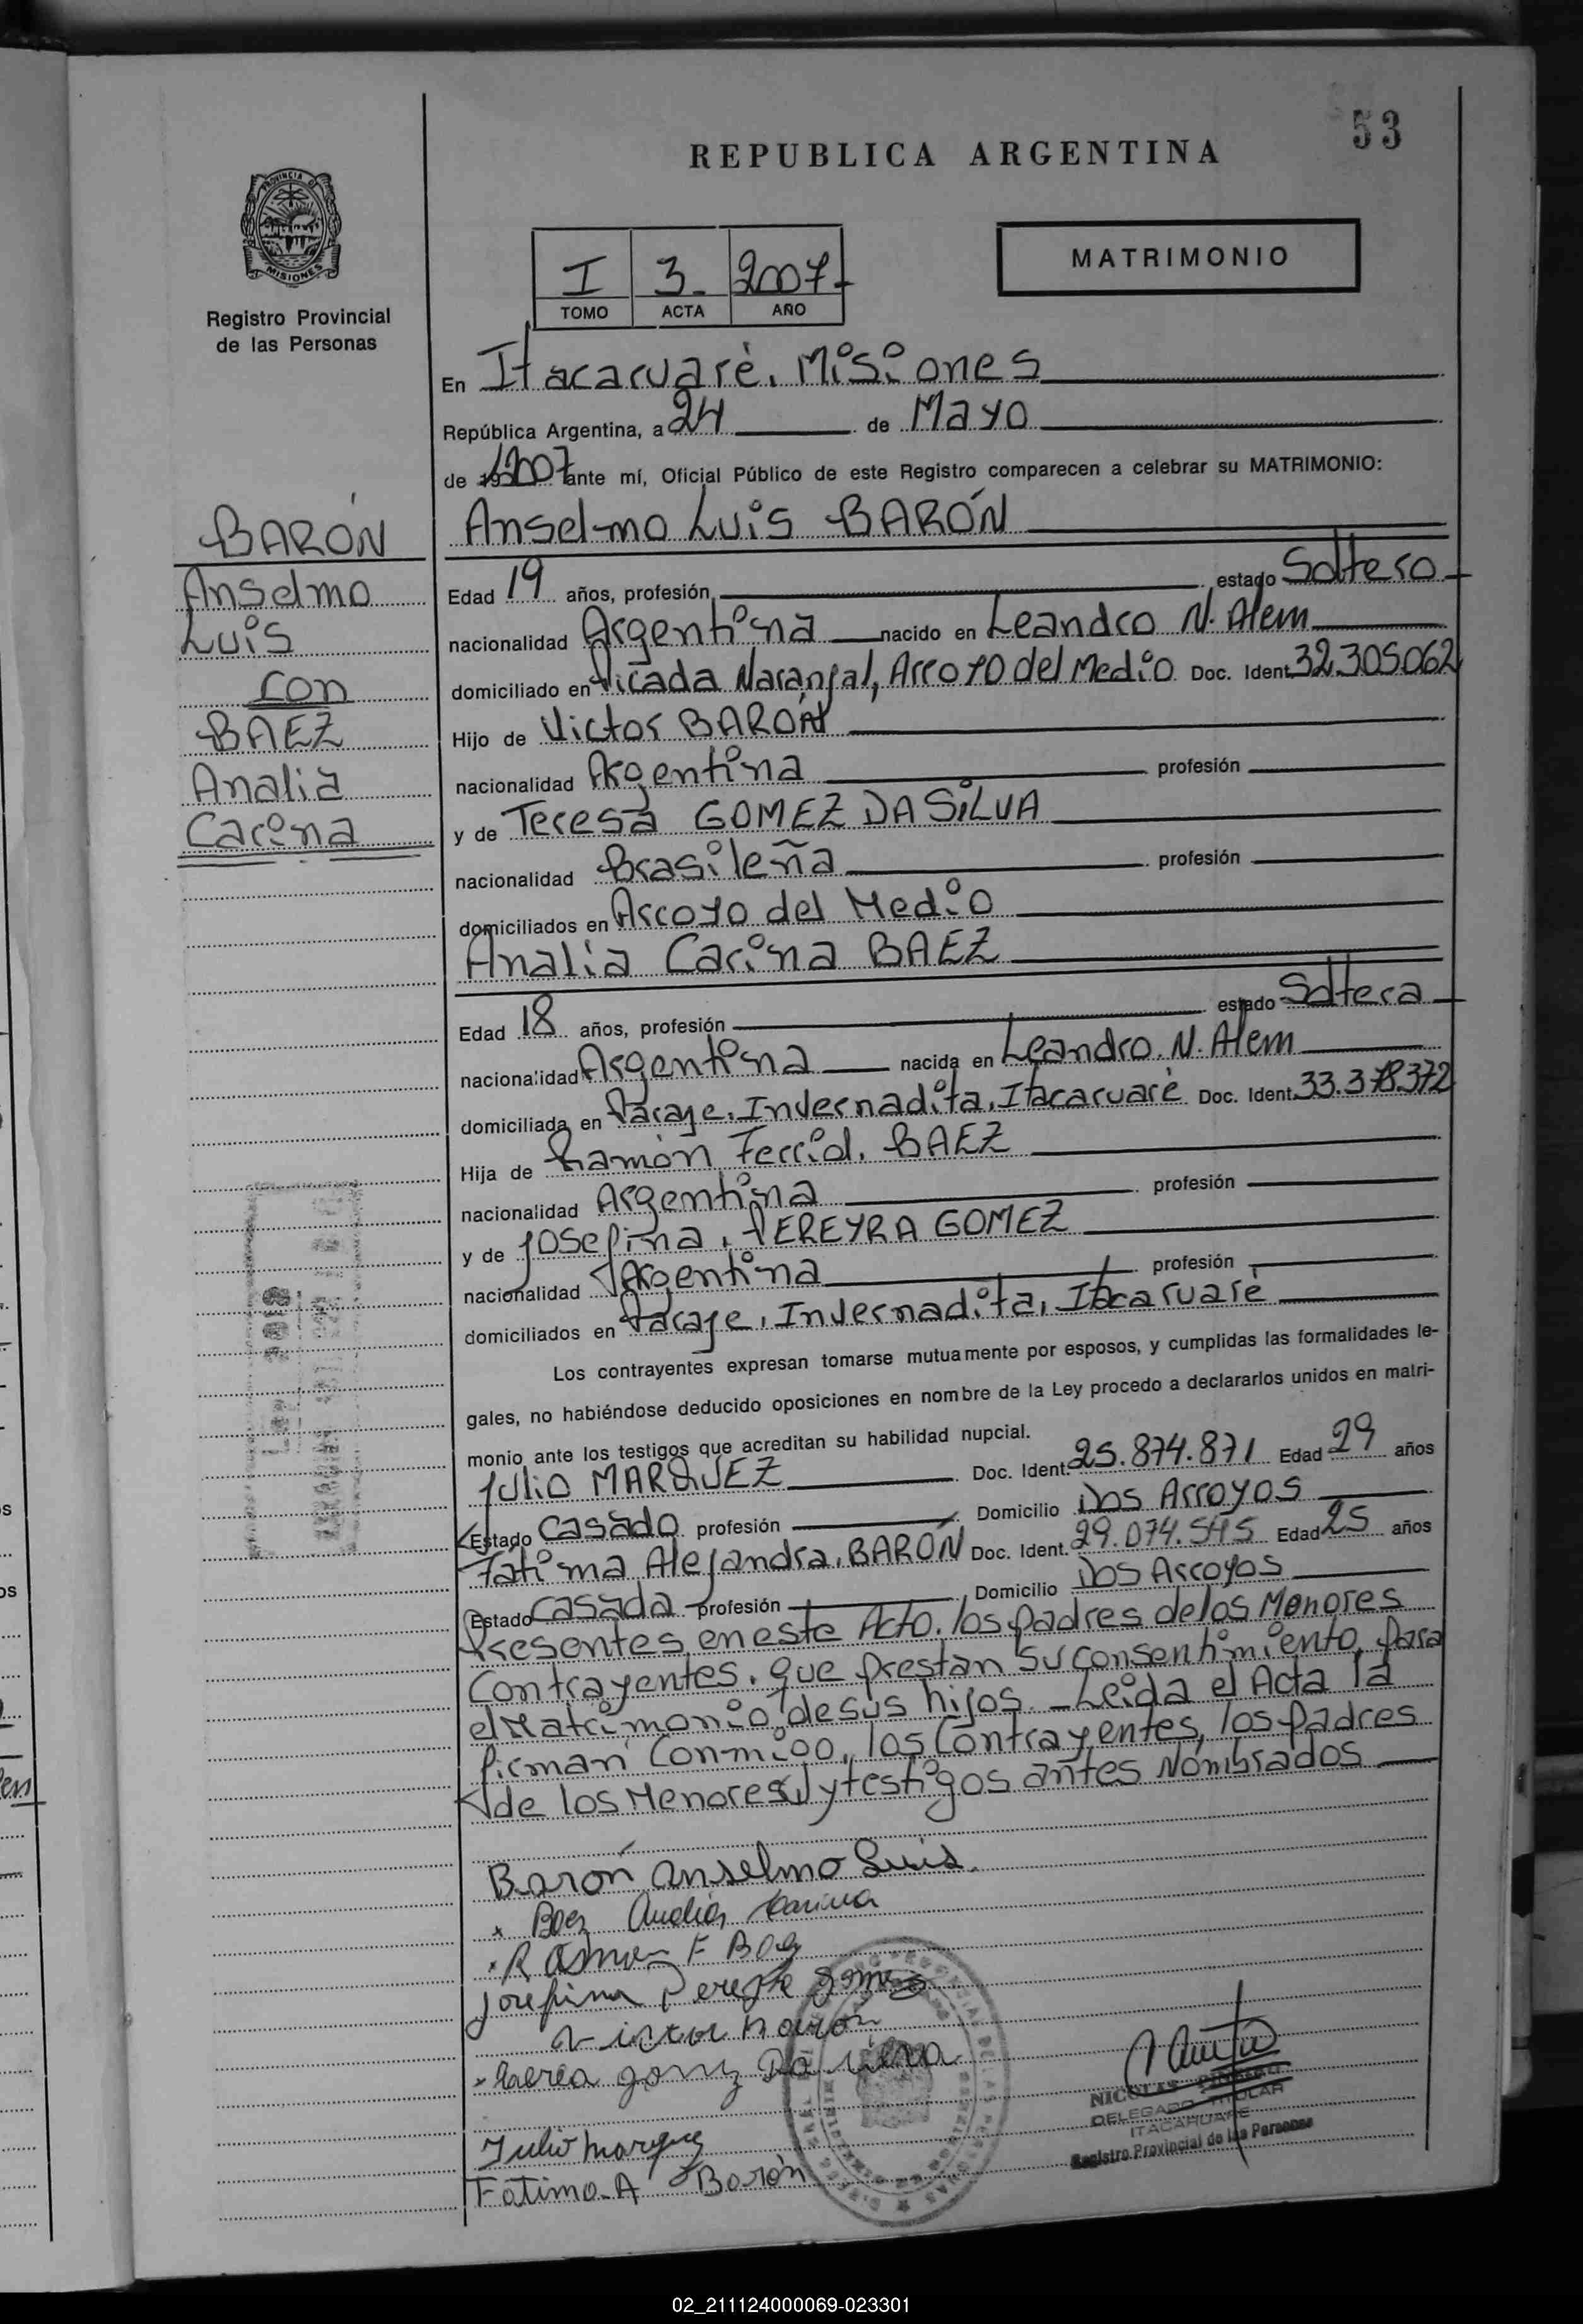 53
REPUBLICA ARGENTINA
PROVINCIA D
MISIONES
Registro Provincial
de las Personas
I 3- 2007-
TOMO ACTA AÑO
MATRIMONIO
En Itacaruaré, Misiones
República Argentina, a 24 de Mayo
de 2007 ante mí, Oficial Público de este Registro comparecen a celebrar su MATRIMONIO:
BARÓN
Anselmo
Luis
con
BAEZ
Analia
Carina
Anselmo Luis BARÓN
Edad 19 años, profesión estado Soltero
nacionalidad Argentina nacido en Leandro N. Alem
domiciliado en Picada Naranjal, Arroyo del Medio Doc. Ident. 32.305.062
Hijo de Victor BARÓN
nacionalidad Argentina profesión
y de Teresa GOMEZ DA SILVA
nacionalidad Brasileña profesión
domiciliados en Arroyo del Medio
Analia Carina BAEZ
Edad 18 años, profesión estado Soltera
nacionalidad Argentina nacida en Leandro. N. Alem
domiciliada en Paraje. Invernadita, Itacaruaré Doc. Ident. 33.378.372
Hija de Ramón Ferrid. BAEZ
nacionalidad Argentina profesión
y de Josefina, PEREYRA GOMEZ
nacionalidad Argentina profesión
domiciliados en Paraje, Invernadita, Itacaruaré
Los contrayentes expresan tomarse mutuamente por esposos, y cumplidas las formalidades le-
gales, no habiéndose deducido oposiciones en nombre de la Ley procedo a declararlos unidos en matri-
monio ante los testigos que acreditan su habilidad nupcial.
Julio MARQUEZ Doc. Ident. 25.874.871 Edad 29 años
Estado Casado profesión Domicilio Dos Arroyos
Fátima Alejandra, BARÓN Doc. Ident. 29.074.545 Edad 25 años
Estado Casada profesión Domicilio Dos Arroyos
Presentes en este Acto. los padres de los Menores
Contrayentes, que prestan su consentimiento, para
el Matrimonio de sus hijos. - Leida el Acta la
firman Conmigo, los Contrayentes, los padres
de los Menores, y testigos antes Nombrados
Barón Anselmo Luis.
x Baez Analia Karina
x Ramon F Baez
Josefina Pereyra Gomez
Victor Baron
x Teresa gomez Da silva
Julio Marquez
Fatima A Barón
NICOLAS
DELEGADO TITULAR
ITACARUARE
Registro Provincial de las Personas
02_211124000069-023301